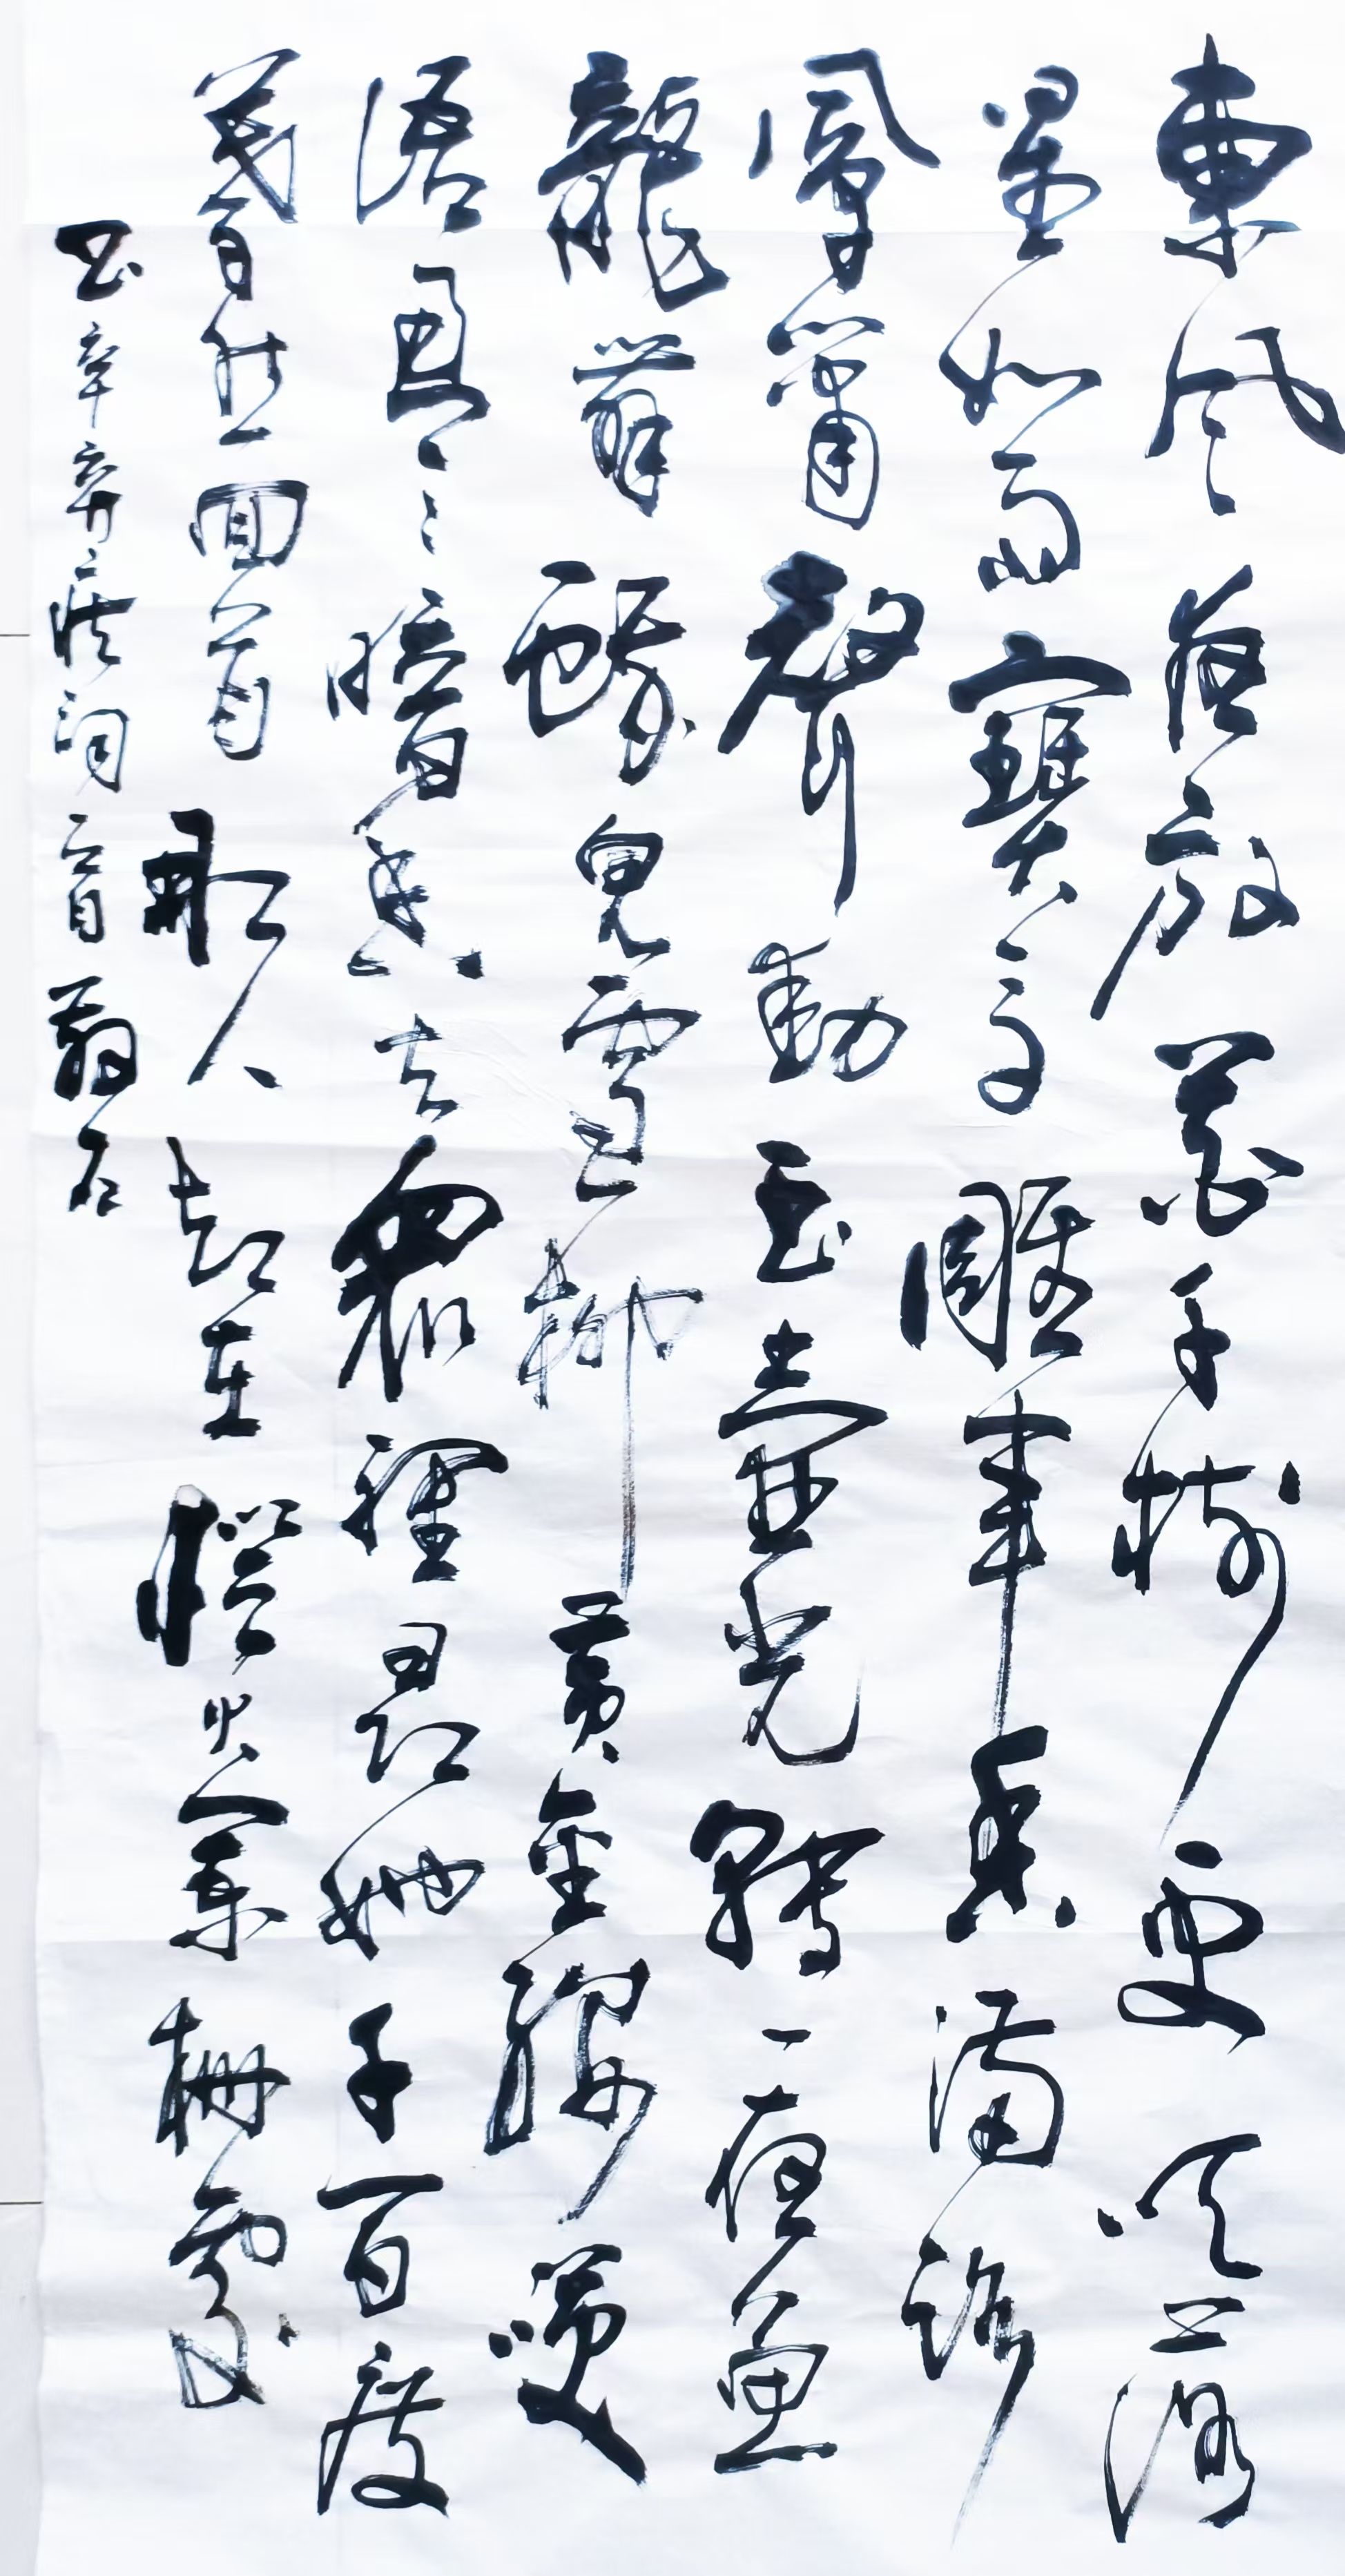 東風夜放花千樹更吹落
星如雨寶馬雕車香滿路
鳳簫聲動玉壺光轉一夜魚
龍舞蛾兒雪柳黃金縷笑
語盈々暗香去眾裡尋她千百度
驀然回首那人却在燈火闌珊處
书辛弃疾词